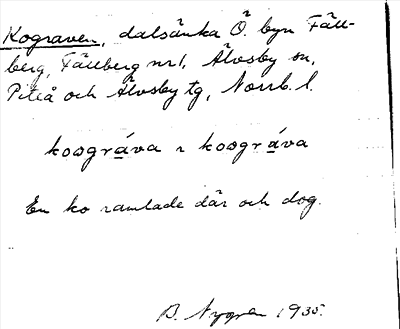 Kograven, dalsänka Ö. byn Fäll-
berg, Fällberg nr 1, Älvsby sn,
Piteå och Älvsby tg, Norrb. l.
kosgráva r kosgráva
En ko ramlade där och dog.
B. Nygren 1935.